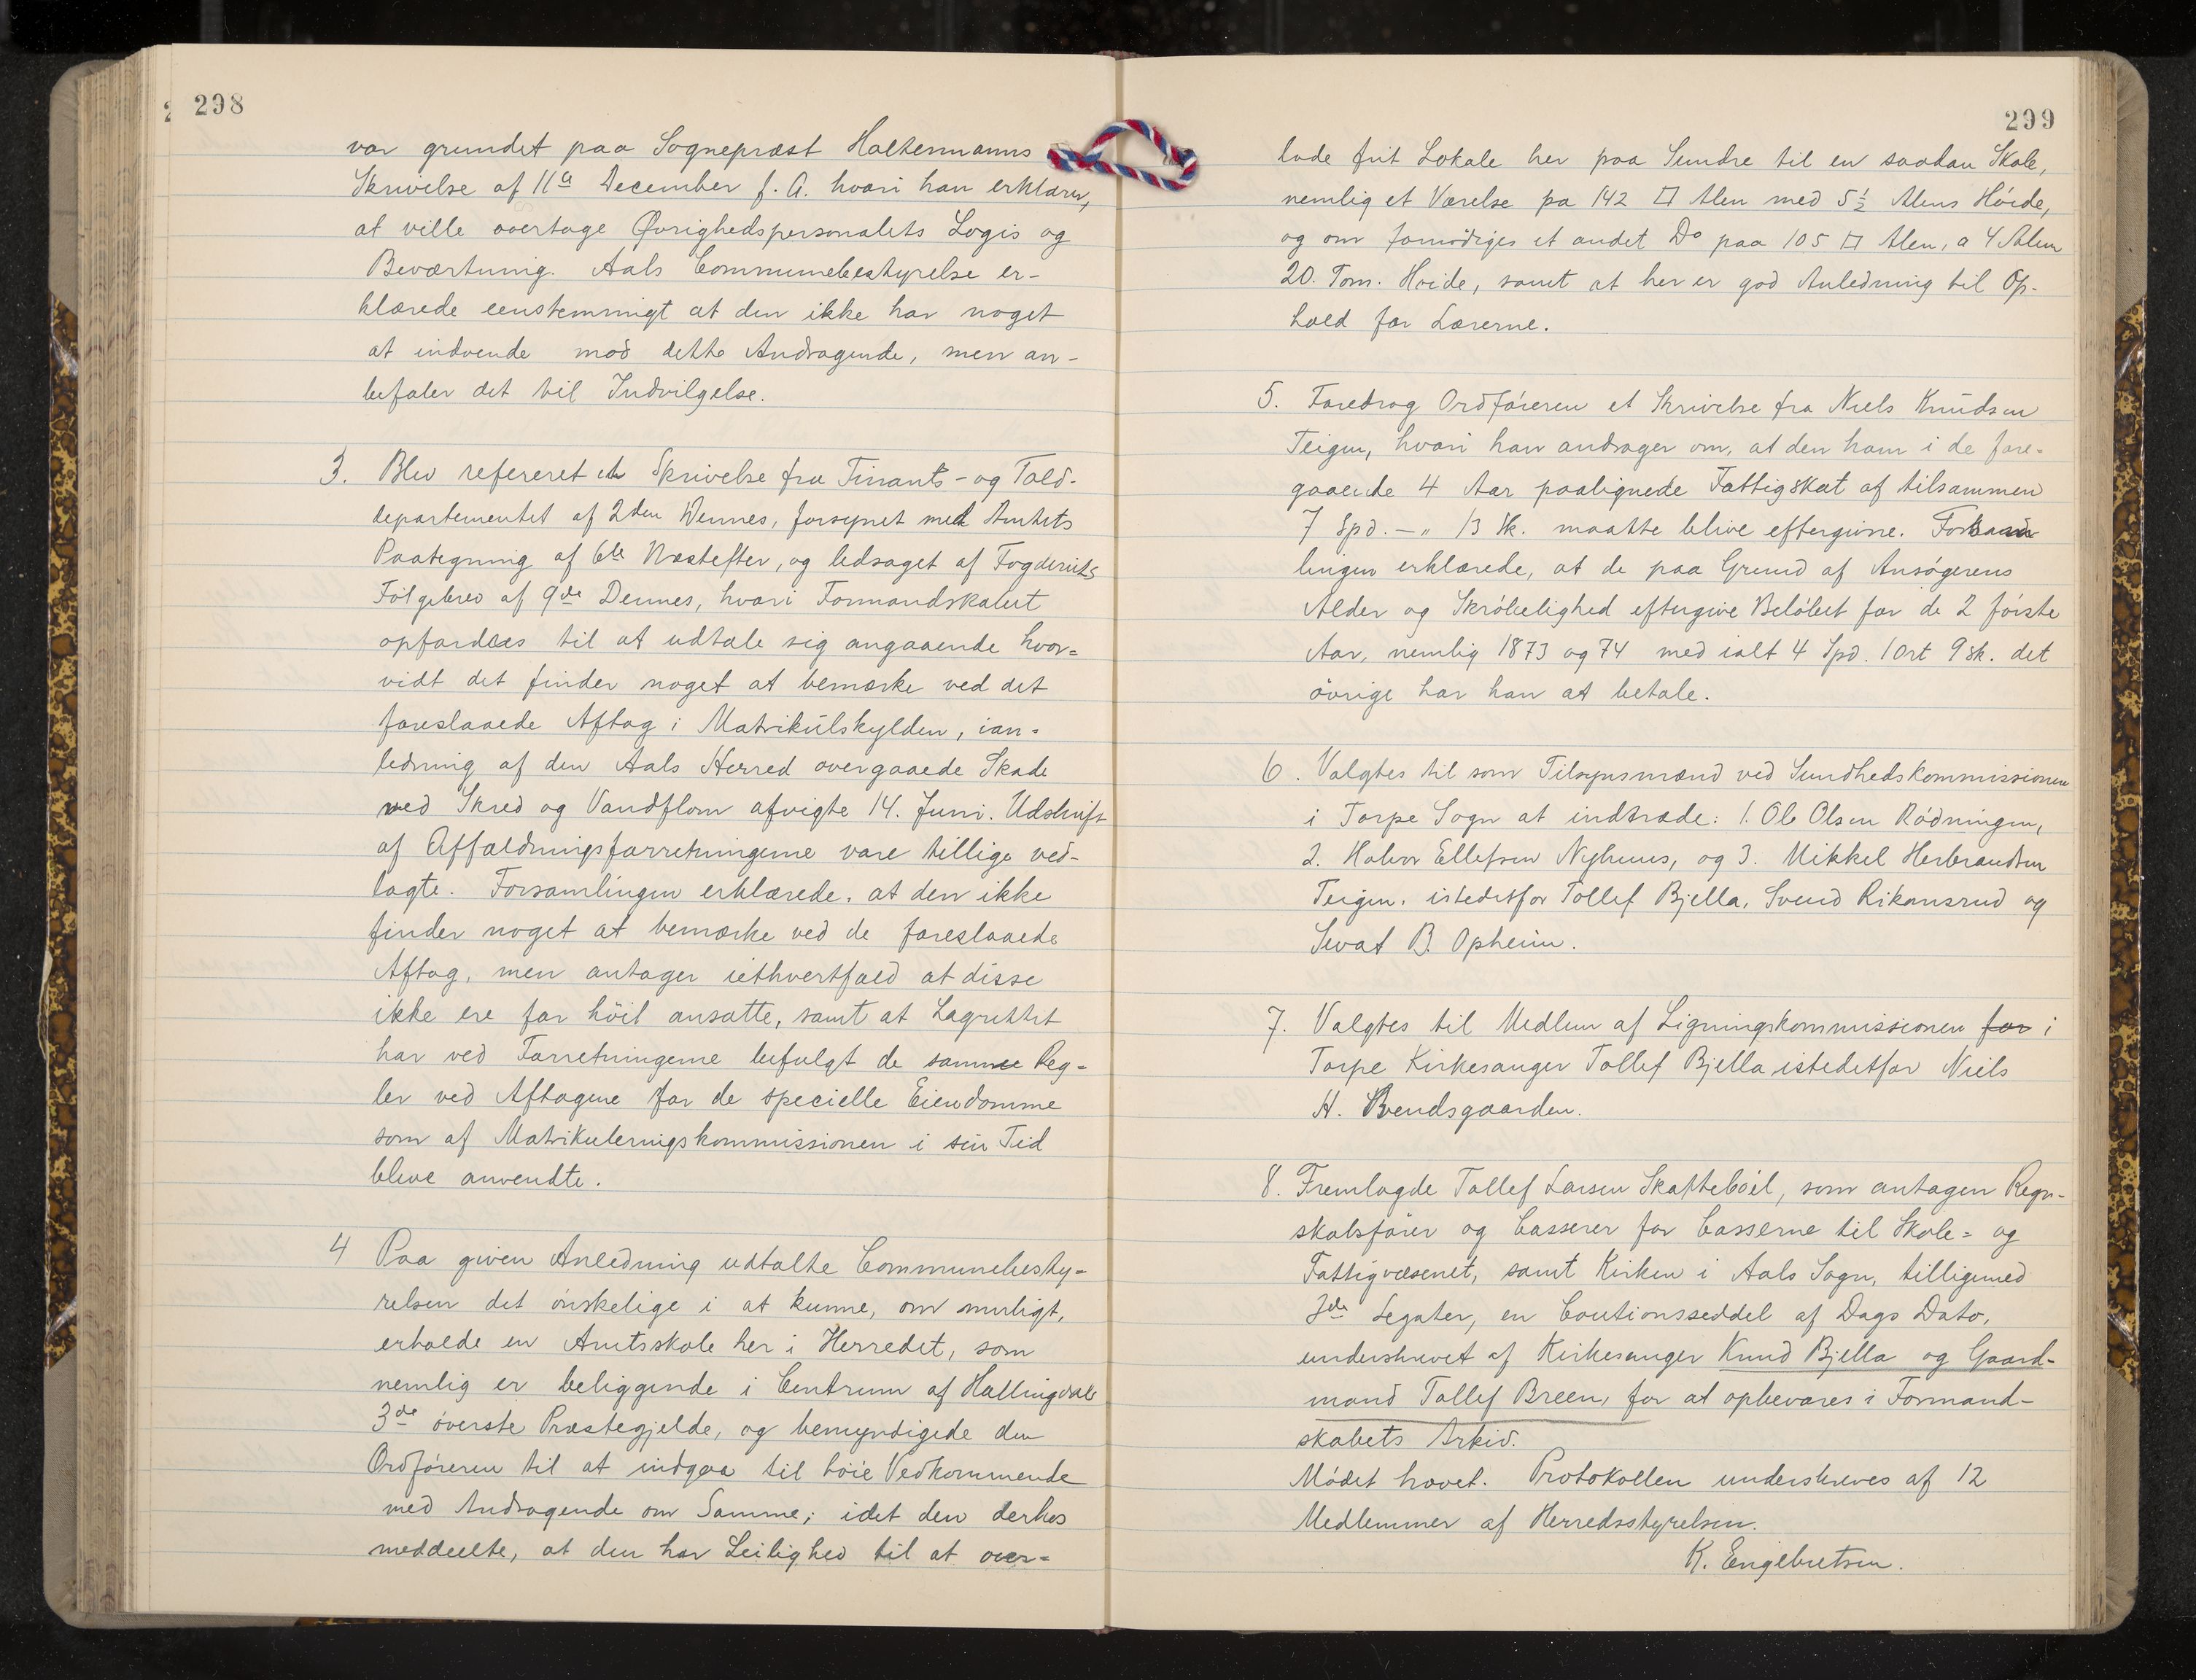 298
var grundet paa Sognepræst Holtermanns
Skrivelse af 11te December f. A. hvori han erklærer,
at ville overtage Øvrighedspersonalets Logis og
Beværtning. Aals Communebestyrelse er-
klærede eenstemmigt at den ikke har noget
at indvende mod dette Andragende, men an-
befaler det til Indvilgelse.
3. Blev refereret en Skrivelse fra Finants- og Told-
departementet af 2den Dennes, forsynet med Amtets
Paategning af 6te Næstefter, og ledsaget af Fogderiets
Følgebrev af 9de Dennes, hvori Formandskabet
opfordres til at udtale sig angaaende hvor=
vidt det finder noget at bemærke ved det
foreslaaede Aftag i Matrikülskylden, ian=
ledning af den Aals Herred overgaaede Skade
ved Skred og Vandflom afvigte 14. Juni. Udskrift
af Affældningsforretningerne vare tillige ved-
lagte. Forsamlingen erklærede. at den ikke
finder noget at bemærke ved de foreslaaede
Aftag, men antager iethvertfald at disse
ikke ere for höit ansatte, samt at Lagrettet
har ved Forretningerne befulgt de samme Reg=
ler ved Aftagene for de specielle Eiendomme
som af Matrikuleringskommissionen i sin Tid
bleve anvendte.
4 Paa given Anledning udtalte Communebesty=
relsen det ønskelige i at kunne, om muligt,
erholde en Amtsskole her i Herredet, som
nemlig er beliggende i Centrum af Hallingdals
3de øverste Præstegjelde, og bemyndigede den
Ordføreren til at indgaa til høie Vedkommende
med Andragende om Samme; idet den derhos
meddeelte, at den har Leilighed til at over=
299
lade frit Lokale her paa Sundre til en saadan Skole,
nemlig et Værelse pa 142 □ Alen med 5½ Alens Høide,
og om fornødiges et andet Do paa 105 □ Alen, a 4 Alen
20. Tom. Høide, samt at her er god Anledning til Op-
hold for Lærerne.
5. Foredrog Ordføreren et Skrivelse fra Niels Knüdsen
Teigen, hvori han andrager om, at den ham i de fore-
gaaende 4 Aar paalignede Fattigskat af tilsammen
7 Spd. – „ 13 Sk. maatte blive eftergivne. Forsam
lingen erklærede, at de paa Grund af Ansøgerens
Alder og Skrøbelighed eftergive Beløbet for de 2 første
Aar, nemlig 1873 og 74 med ialt 4 Spd. 1 Ort 9 sk. det
øvrige har han at betale.
6. Valgtes til som Tilsynsmænd ved Sundhedskommissionen
i Torpe Sogn at indtræde: 1. Ole Olsen Rødningen,
2. Halvor Ellefsen Nyhuus, og 3. Mikkel Herbrandsen
Teigen. istedetfor Tollef Bjella, Svend Rikansrud og
Sevat B. Opheim.
7. Valgtes til Medlem af Ligningskommissionen for i
Torpe Kirkesanger Tollef Bjella istedetfor Niels
H. Svendsgaarden.
8. Fremlagde Tollef Larsen Skaftebøl, som antagen Regn-
skabsfører og Casserer for Casserne til Skole= og
Fattigvæsenet, samt Kirken i Aals Sogn, tilligemed
3de Legater, en Cautionsseddel af Dags Dato,
underskrevet af Kirkesanger Knud Bjella og Gaard-
mand Tollef Breen, for at opbevares i Formand-
skabets Arkiv.
Mødet hævet. Protokollen underskreves af 12
Medlemmer af Herredsstyrelsen.
K. Engebretsen.